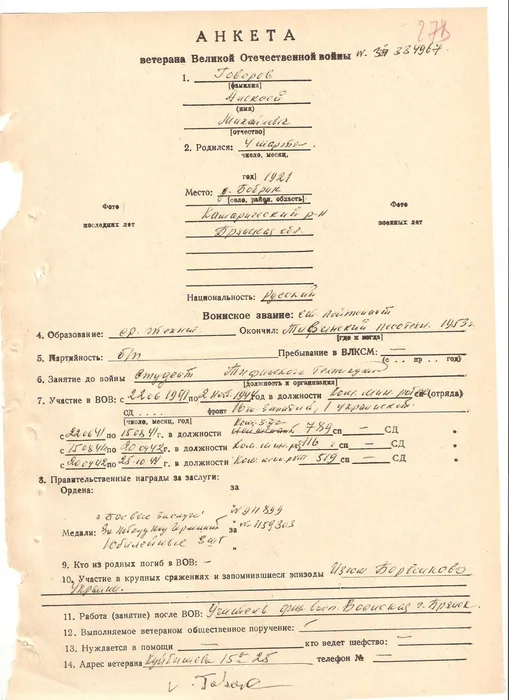 АНКЕТА
27б
ветерана Великой Отечественной войны № 334967
1. Говоров
(фамилия)
Алексей
(имя)
Михайлович
(отчество)
2. Родился: 4 марта
число, месяц,
год) 1921
Место: с. Бобрик
(село, район, область)
р-н
Брянская обл.
Фото
последних лет
Фото
военных лет
Национальность: Русский
Воинское звание: ст. лейтенант
4. Образование: ср. технич. Окончил: 1953 г.
(где и когда)
5. Партийность: б/п Пребывание в ВЛКСМ: —
(с . . пр . . год)
6. Занятие до войны Студент
(должность и организация)
7. Участие в ВОВ: с 22.06.1941 по год в должности сп (отряда)
СД . . . . фронт 1 украинской
(число, месяц, год)
с 22.06.41 по 15.08.41 г. в должности 789 сп — СД
с 15.08.41 по 20.04.42 г. в должности 116 сп — СД "
с 20.04.42 по 25.10.44 г. в должности 519 сп — СД "
8. Правительственные награды за заслуги:
Ордена: за
"Боевые заслуги" № 911899
Медали: За победу над Германией за № 1159303
Юбилейные 3 шт "
9. Кто из родных погиб в ВОВ: —
10. Участие в крупных сражениях и запомнившиеся эпизоды Изюм Барвенково
Украина.
11. Работа (занятие) после ВОВ: Учитель г. Брянск
12. Выполняемое ветераном общественное поручение: —
13. Нуждается в помощи — кто ведет шефство: —
14. Адрес ветерана Куйбышева 15 25 телефон № —